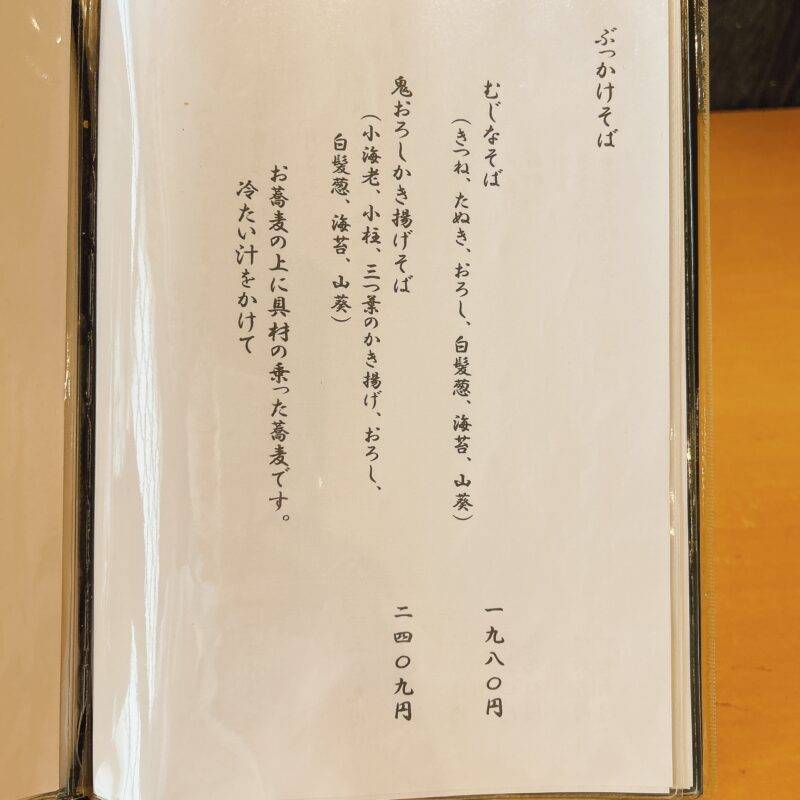 ぶっかけそば
むじなそば 一九八〇円
（きつね、たぬき、おろし、白髪葱、海苔、山葵）
鬼おろしかき揚げそば 二四〇九円
（小海老、小柱、三つ葉のかき揚げ、おろし、
白髪葱、海苔、山葵）
お蕎麦の上に具材の乗った蕎麦です。
冷たい汁をかけて